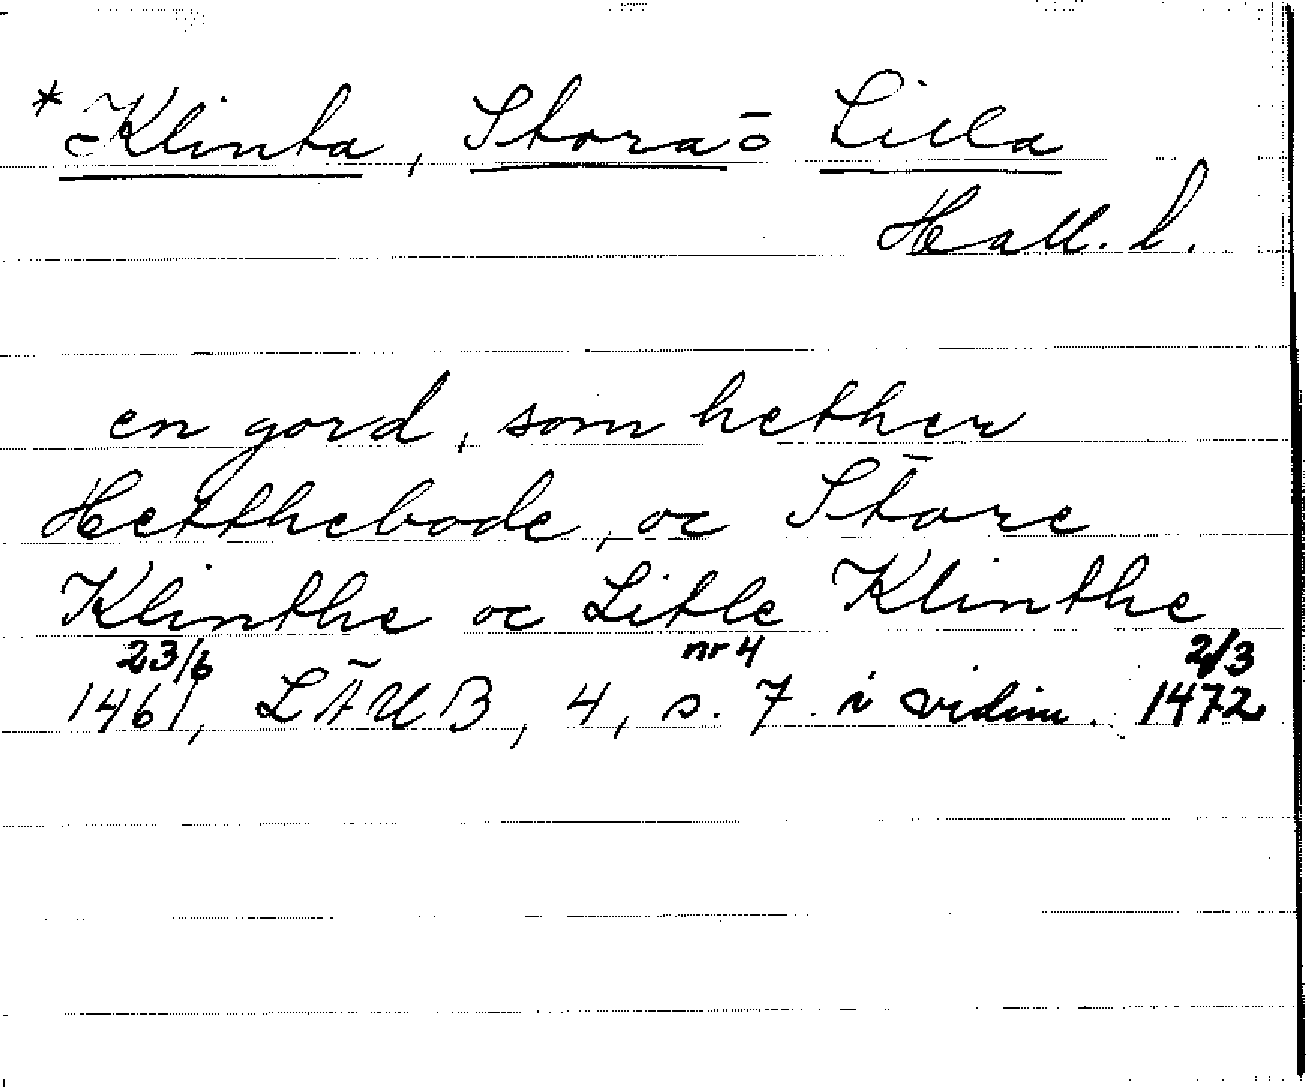 *Klinta, Stora o̅ Lilla
Hall. l.
en gord, som hether
Hetthebode, oc Store
Klinthe oc Litle Klinthe
23/6 nr 4 2/3
1461, LÄUB, 4, s. 7 i vidim. 1472